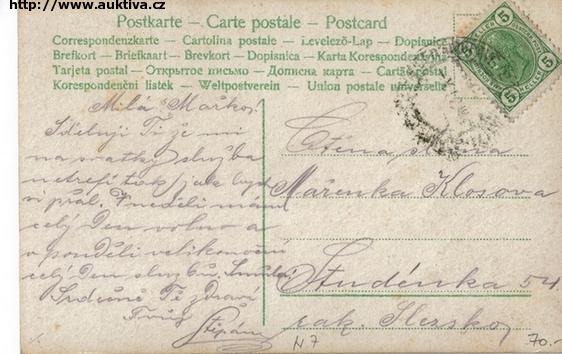 http://www.auktiva.cz
Postkarte – Carte postale – Postcard
Correspondenzkarte – Cartolina postale – Levelező-Lap – Dopisnica
Brefkort – Briefkaart – Brevkort – Dopisnica – Karta Korespondencyjna
Tarjeta postal – Открытое письмо – Дописна карта – Cartão postal
Korespondenční listek – Weltpostverein – Union postale universelle
5 5
5 5
HELLER
Milá Mařko,
Sděluji Ti že mi
na svátky služba
netrefí tak jak bych
si přál. V neděli mám
celý Den volno a
v pondělí velikonoční
celý Den službu.
Srdečně Tě zdraví
Tvůj
Štěpán
Ctěná slečna
Mařenka Klosova
Studénka 54
rak. Slezsko
N7
70.-